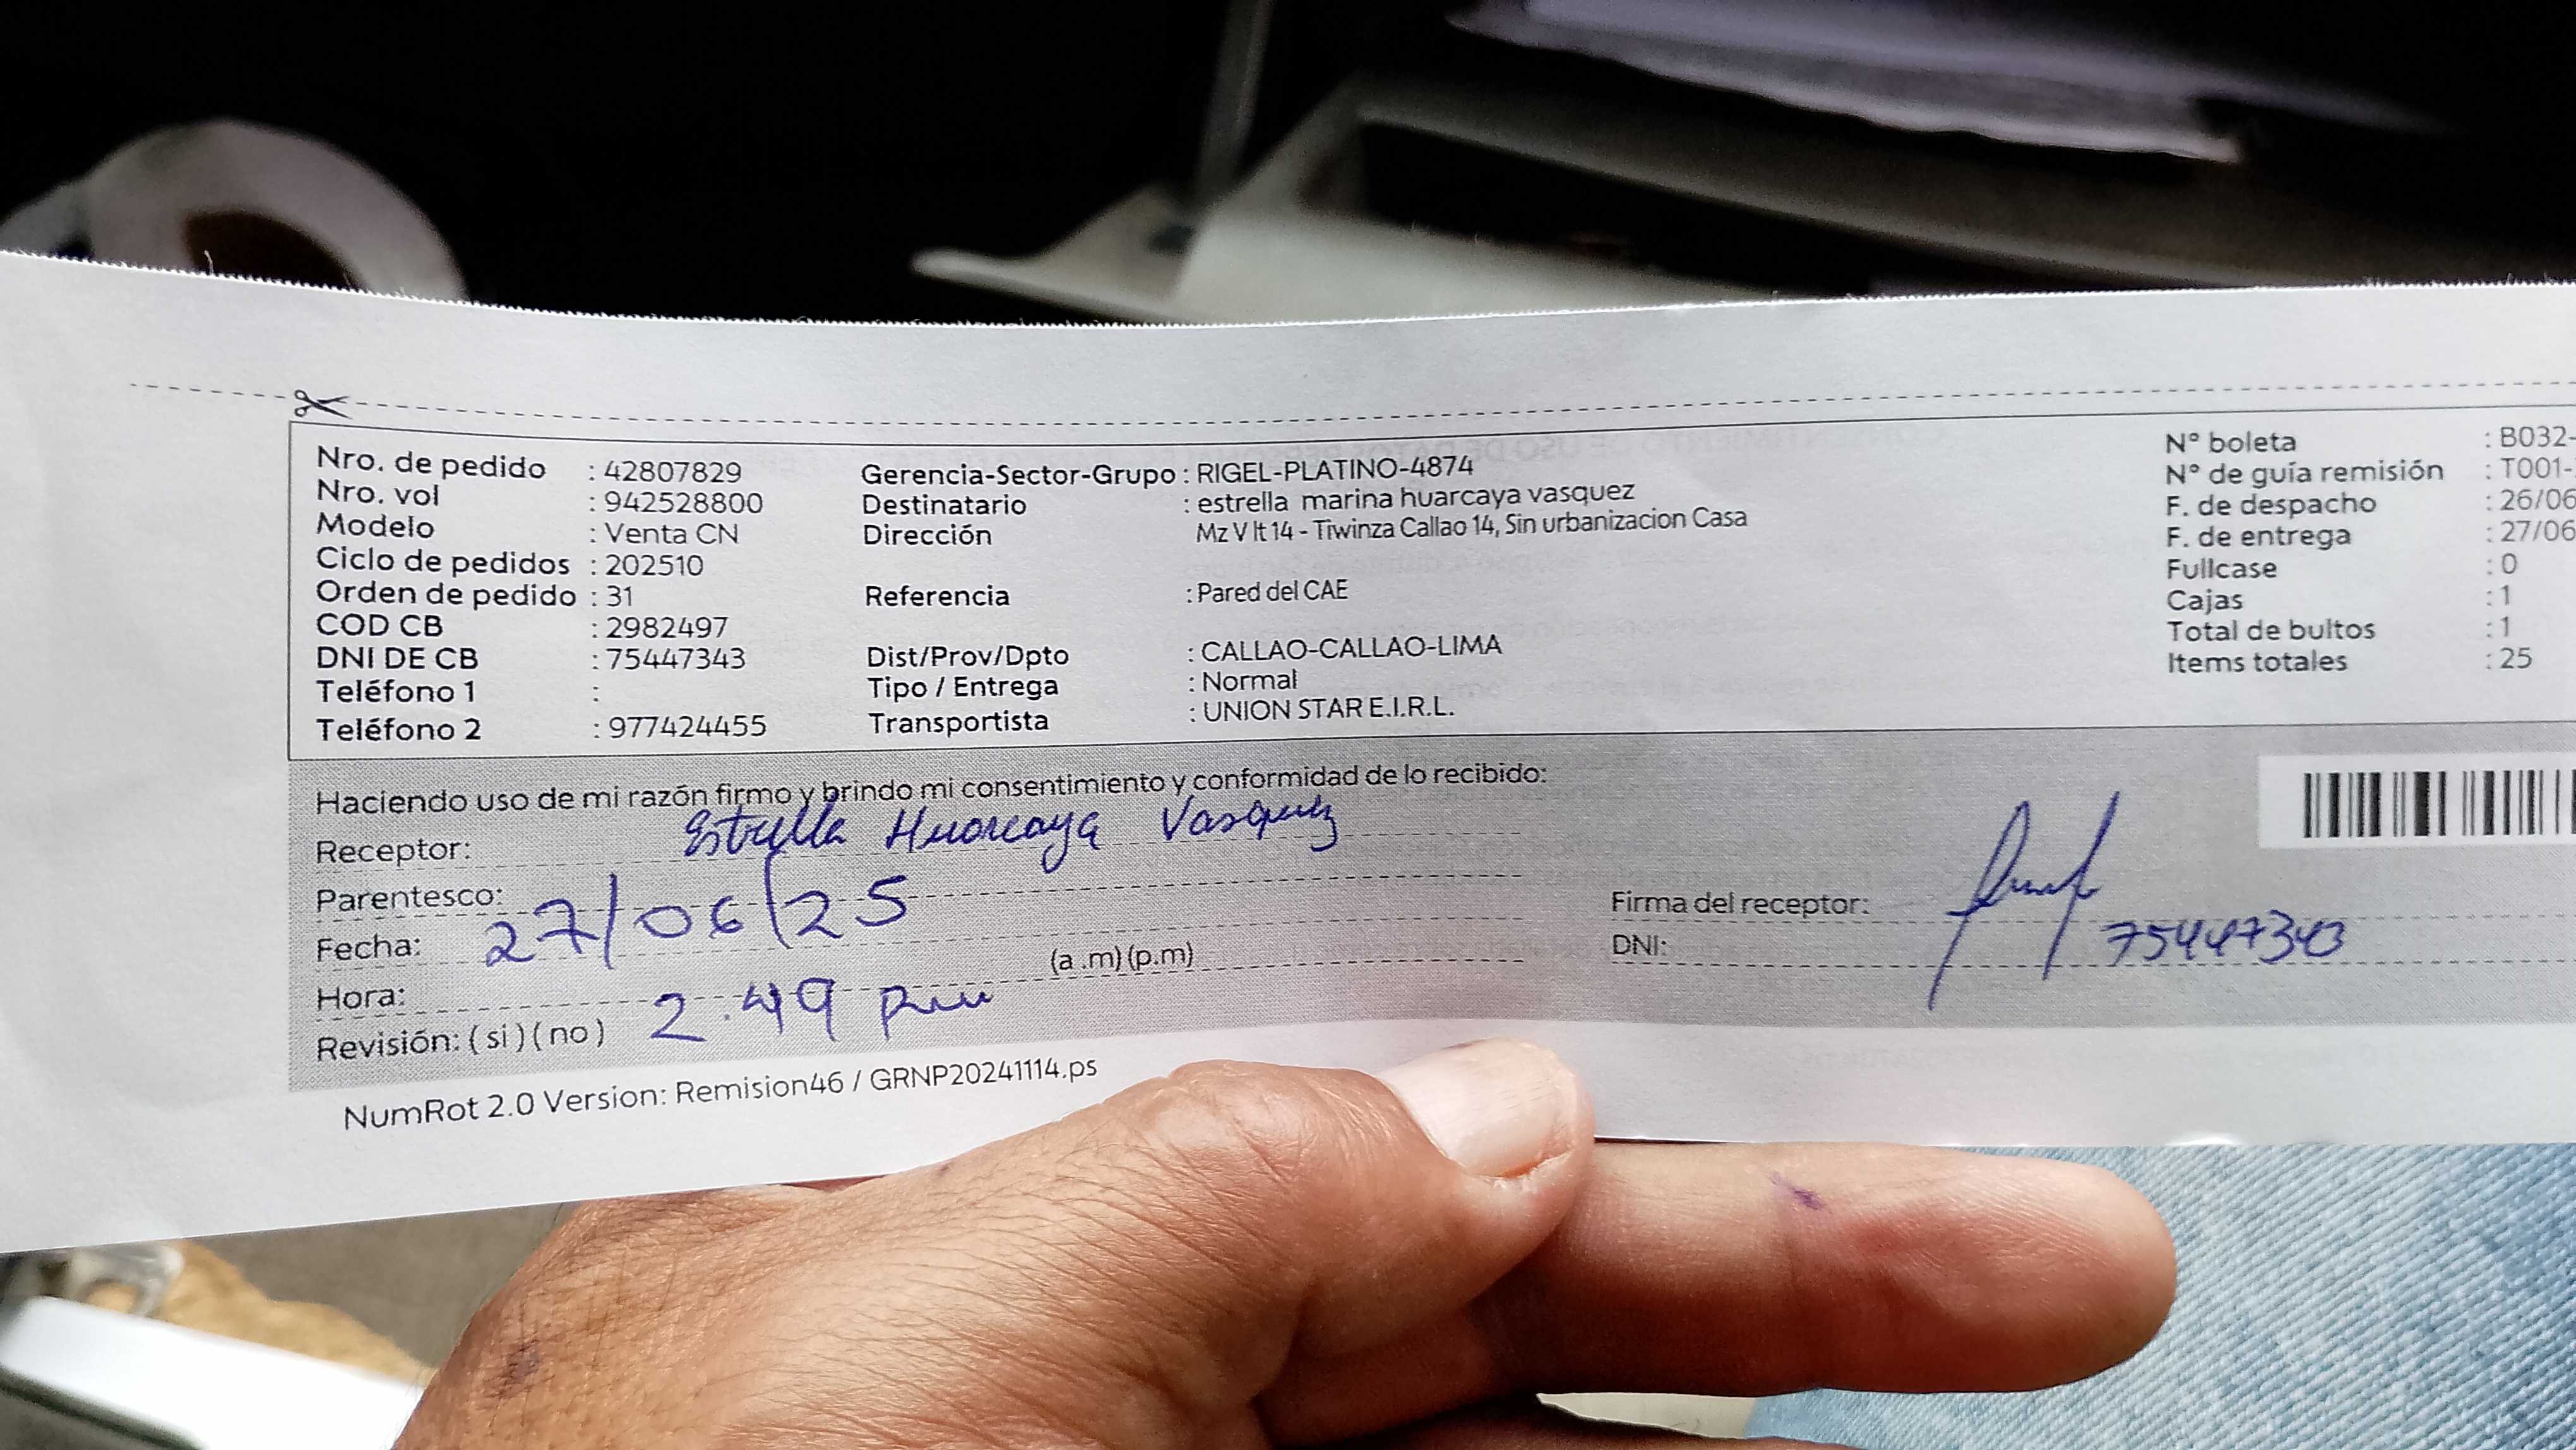 Nro. de pedido : 42807829 Gerencia-Sector-Grupo : RIGEL-PLATINO-4874 N° boleta : B032-
Nro. vol : 942528800 Destinatario : estrella marina huarcaya vasquez N° de guía remisión : T001-
Modelo : Venta CN Dirección Mz V lt 14 - Tiwinza Callao 14, Sin urbanizacion Casa F. de despacho : 26/06
Ciclo de pedidos : 202510 F. de entrega : 27/06
Orden de pedido : 31 Referencia : Pared del CAE Fullcase : 0
COD CB : 2982497 Cajas : 1
DNI DE CB : 75447343 Dist/Prov/Dpto : CALLAO-CALLAO-LIMA Total de bultos : 1
Teléfono 1 : Tipo / Entrega : Normal Items totales : 25
Teléfono 2 : 977424455 Transportista : UNION STAR E.I.R.L.
Haciendo uso de mi razón firmo y brindo mi consentimiento y conformidad de lo recibido:
Receptor: Estrella Huarcaya Vasquez
Parentesco:
Firma del receptor:
Fecha: 27/06/25
DNI: 75447343
Hora: 2.49 pm (a .m) (p.m)
Revisión: ( si ) ( no )
NumRot 2.0 Version: Remision46 / GRNP20241114.ps